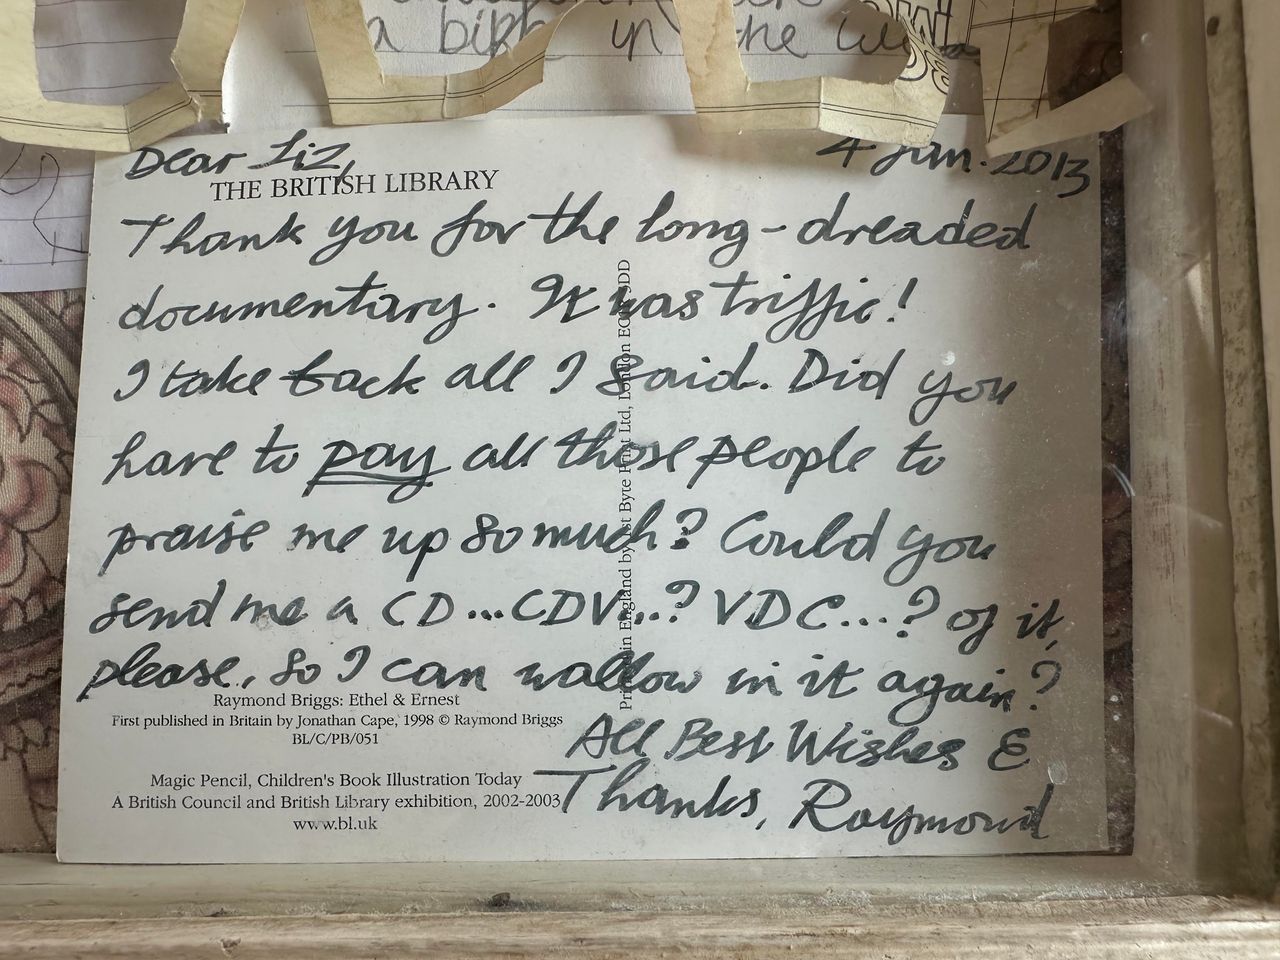 a birth in the
Dear Liz,
4 Jun. 2013
THE BRITISH LIBRARY
Thank you for the long-dreaded
documentary. It was triffic!
I take back all I said. Did you
have to pay all those people to
praise me up so much? Could you
send me a CD...CDV...? VDC...? of it,
please, so I can wallow in it again?
All Best Wishes &
Thanks, Raymond
Raymond Briggs: Ethel & Ernest
First published in Britain by Jonathan Cape, 1998 © Raymond Briggs
BL/C/PB/051
Magic Pencil, Children's Book Illustration Today
A British Council and British Library exhibition, 2002-2003
www.bl.uk
in England by Byte Print Ltd, London